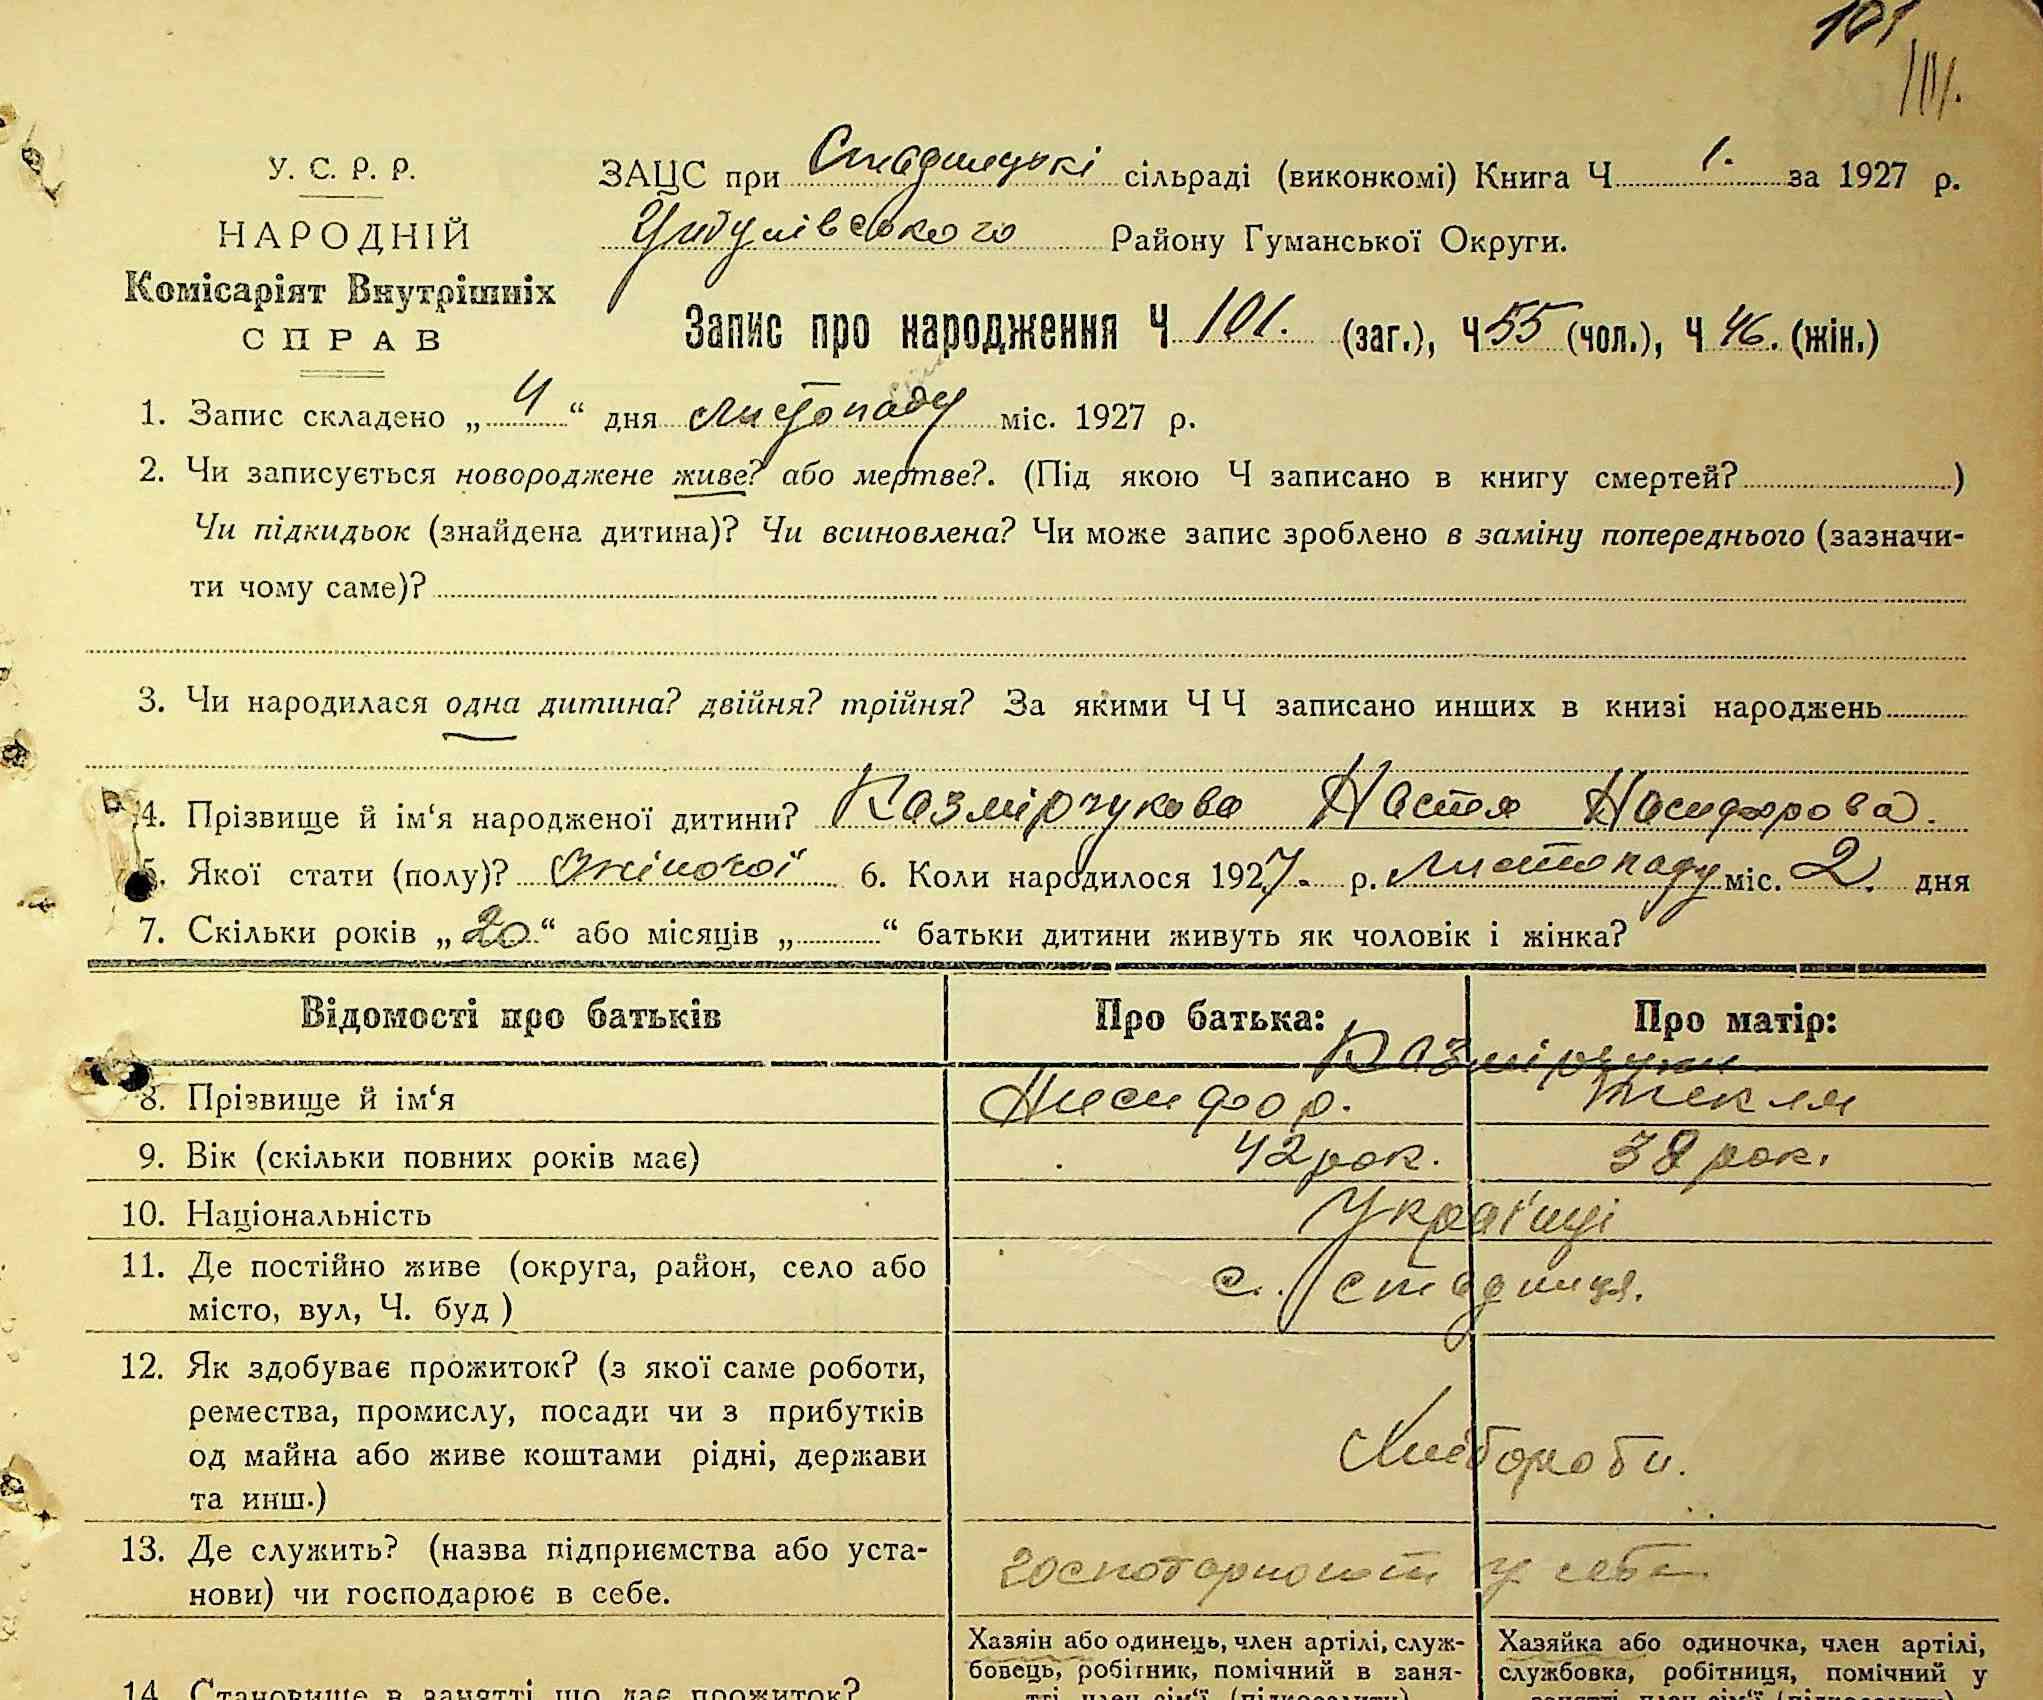 101
101.
У. С. Р. Р.
НАРОДНІЙ
Комісаріят Внутрішніх
СПРАВ
ЗАЦС при Стадницькі сільраді (виконкомі) Книга Ч 1. за 1927 р.
Цибулівського Району Гуманської Округи.
Запис про народження Ч 101. (заг.), Ч 55 (чол.), Ч 46. (жін.)
1. Запис складено „ 4 “ дня листопаду міс. 1927 р.
2. Чи записується новороджене живе? або мертве?. (Під якою Ч записано в книгу смертей? )
Чи підкидьок (знайдена дитина)? Чи всиновлена? Чи може запис зроблено в заміну попереднього (зазначи-
ти чому саме)?
3. Чи народилася одна дитина? двійня? трійня? За якими ЧЧ записано инших в книзі народжень
4. Прізвище й ім‘я народженої дитини? Казмірчукова Настя Насифорова.
5. Якої стати (полу)? Жіночої 6. Коли народилося 1927. р. Листопаду міс. 2. дня
7. Скільки років „ 20 “ або місяців „ “ батьки дитини живуть як чоловік і жінка?
Відомості про батьків Про батька: Про матір:
Казмірчуки
8. Прізвище й ім‘я Нисифор. Текля
9. Вік (скільки повних років має) 42 рок. 38 рок.
10. Національність Україці
11. Де постійно живе (округа, район, село або
місто, вул, Ч. буд ) с. Стадниця.
12. Як здобуває прожиток? (з якої саме роботи,
ремества, промислу, посади чи з прибутків
од майна або живе коштами рідні, держави
та инш.) Хлібороби.
13. Де служить? (назва підприємства або уста-
нови) чи господарює в себе. у себе
Хазяін або одинець, член артілі, служ-
бовець, робітник, помічний в заня-
тті, член сім‘ї (підкреслити)
Хазяйка або одиночка, член артілі,
службовка, робітниця, помічний у
занятті, член сім‘ї (підкреслити)
14. Становище в занятті що дає прожиток?